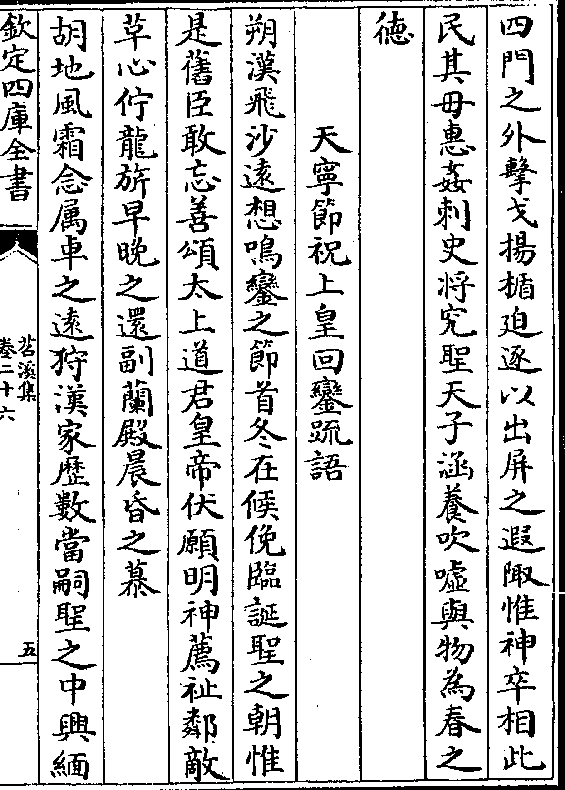 四門之外擊戈揚楯廹逐以出屏之遐陬惟神卒相此
民其毋惠姦刺史將究聖天子涵養吹噓與物為春之
徳
天寧節祝上皇回鑾䟽語
朔漠飛沙遠想鳴鑾之節首冬在候俛臨誕聖之朝惟
是舊臣敢忘善頌太上道君皇帝伏願明神薦祉鄰敵
草心佇龍旂早晩之還副蘭殿晨昏之慕
胡地風霜念属車之遠狩漢家歴數當嗣聖之中興緬
欽定四庫全書
苕溪集
卷二十六
五